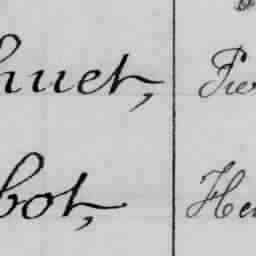 huet, Pier
bot, Hen